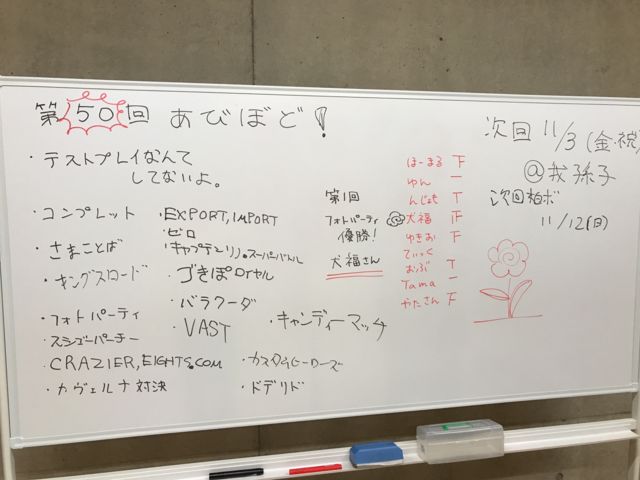 第50回 あびぼど!
・テストプレイなんて
してないよ。
・コンプレット
・さまことば
・キングスロード
・フォトパーティ
・スシゴーパーチー
・CRAZIER,EIGHTS.COM
・カヴェルナ対決
・EXPORT,IMPORT
・ゼロ
・キャプテンリノ。スーパーバトル
・ごきぽロイヤル
・バラクーダ
・VAST
・キャンディーマッチ
・ドデリド
第1回
フォトパーティ
優勝!
犬福さん
ほーまる 下
ゆん 一
んじょも T
犬福 正
ゆきお F
てぃっく
おぶ T
Tama 一
やたさん F
次回 11/3(金・祝)
@我孫子
次回柏ボ
11/12(日)